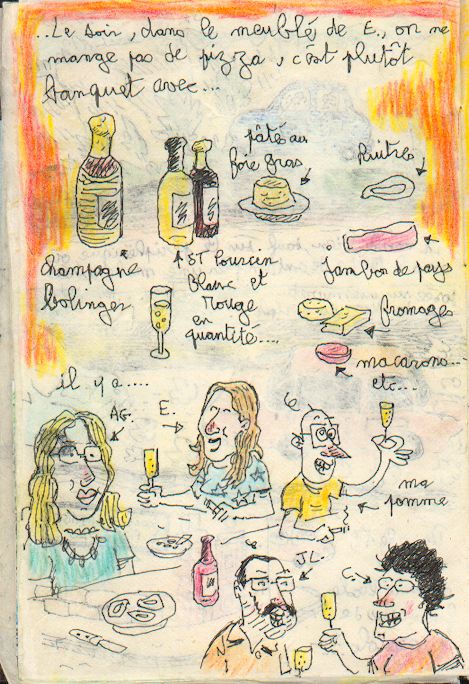 ...Le soir, dans le meublé de E., on ne
mange pas de pizza, c'est plutôt
banquet avec...
pâté au
foie gras
huitres
champagne
bolinger
St Pourcin
Blanc et
Rouge
en
quantité....
jambon de pays
fromages
macarons...
etc...
il y a....
AG.
E.
ma
pomme
JL.
C.